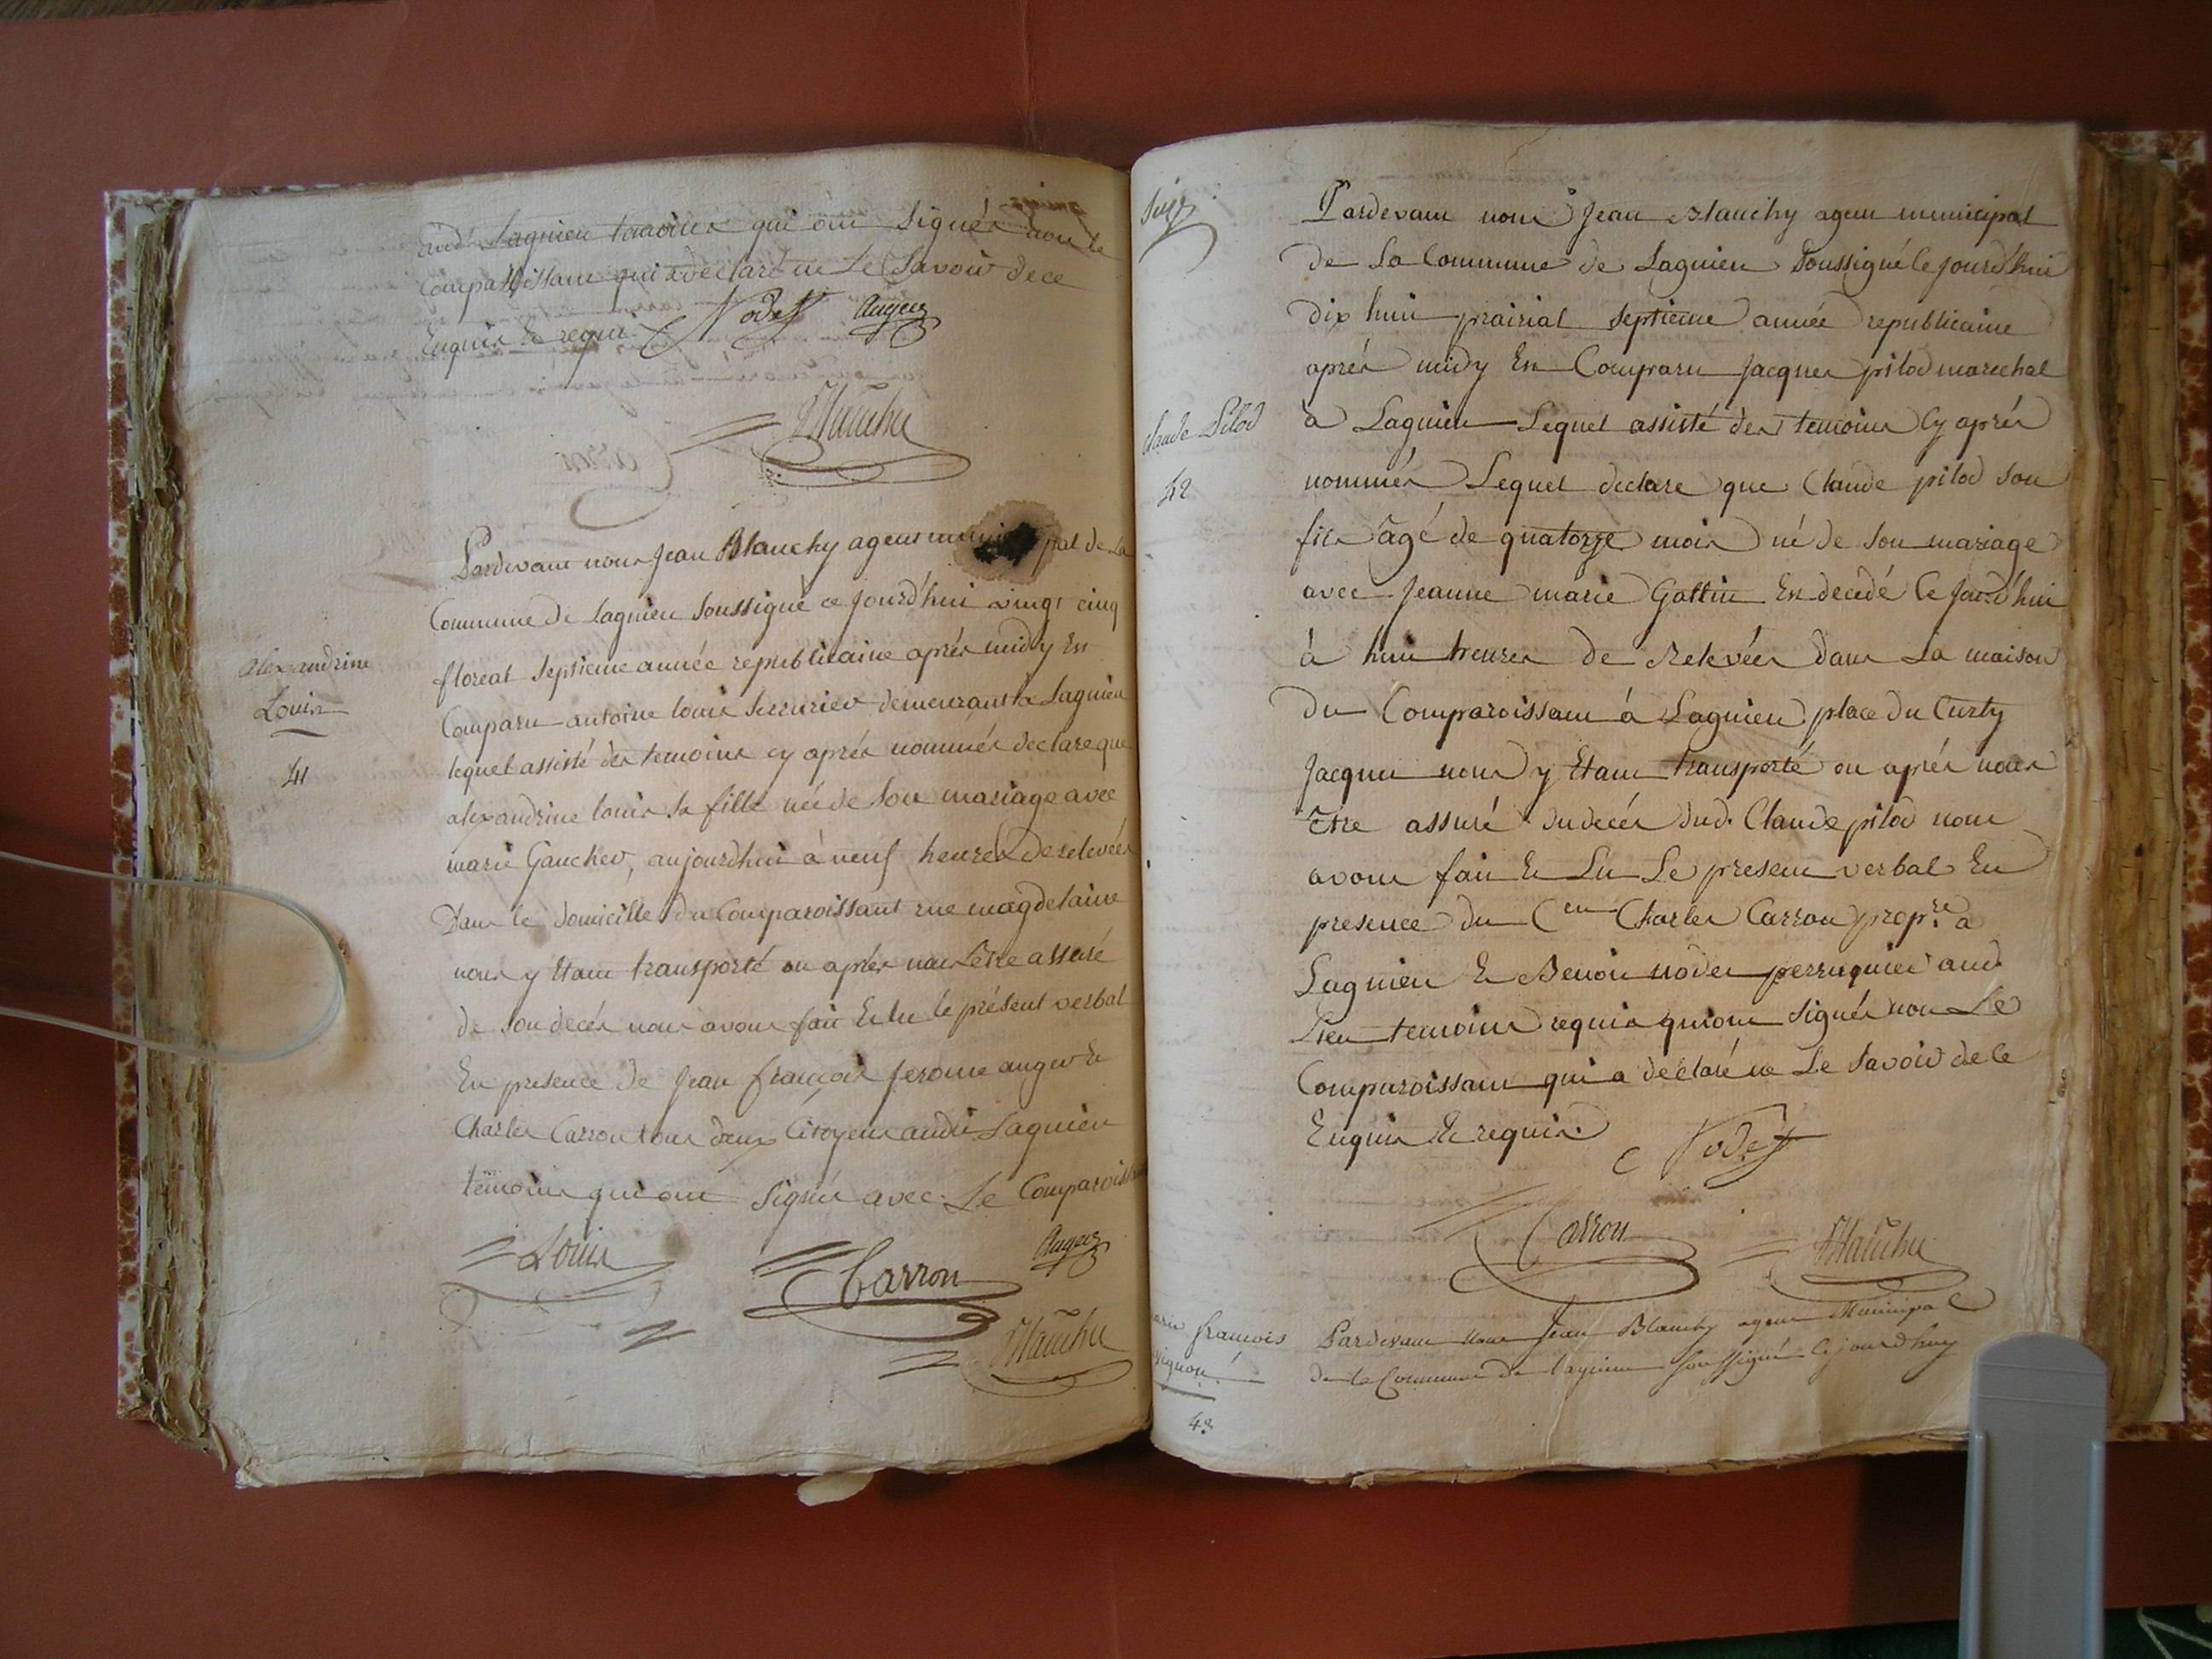 aud. Lagnieu temoins qui ont signés non le
Comparoissant qui a déclaré ne Le Savoir de ce
Enquis Et requis
Nodet Auger
Blanchy
Pardevant nous Jean Blanchy agent municipal de La
Commune de Lagnieu Soussigné ce jourd'hui vingt cinq
floreal Septieme année republicaine après midy Est
Comparu antoine louis Serrurier demeurant à Lagnieu
lequel assisté des temoins cy après nommés declare que
alexandrine louis sa fille née de Son mariage avec
marie Gaucher, aujourdhui à neuf heures de relevées
Dans le domicille du Comparoissant rue magdelaine
nous y Etant transporté ou après nous Etre assuré
de Son decés nous avons fait Et lu le présent verbal
En presence de Jean françois Jerome auger Et
Charles Carron tous deux Citoyens audit Lagnieu
temoins qui ont Signés avec Le Comparoissant
Alexandrine
Louis
41
Louis Carron Auger
Blanchy
Claude Pilod
42
Pardevant nous Jean Blanchy agent municipal
de La Commune de Lagnieu Soussigné Ce jourd'hui
dix huit prairial Septieme année republicaine
après midy Est Comparu Jacques pilod marechal
à Lagnieu Lequel assisté des temoins Cy après
nommés Lequel declare que Claude pilod Son
fils âgé de quatorze mois né de Son mariage
avec Jeanne marie Gottin Est decedé Ce jourd'hui
à huit heures de Relevées dans La maison
du Comparoissant à Lagnieu place du Curty
Jacques nous y Etant transporté ou après nous
Etre assuré du decés dud. Claude pilod nous
avons fait Et Lu Le present verbal En
presence du Cen Charles Carron propre. à
Lagnieu Et Benoit nodet perruquier aud.
Lieu temoins requis qui ont Signés non Le
Comparoissant qui a declaré ne Le Savoir de Ce
Enquis Et requis.
Nodet
Carron Blanchy
françois
43
Pardevant Nous Jean Blanchy agent Municipal
de la Commune de lagnieu Soussigné Ce jourd'huy